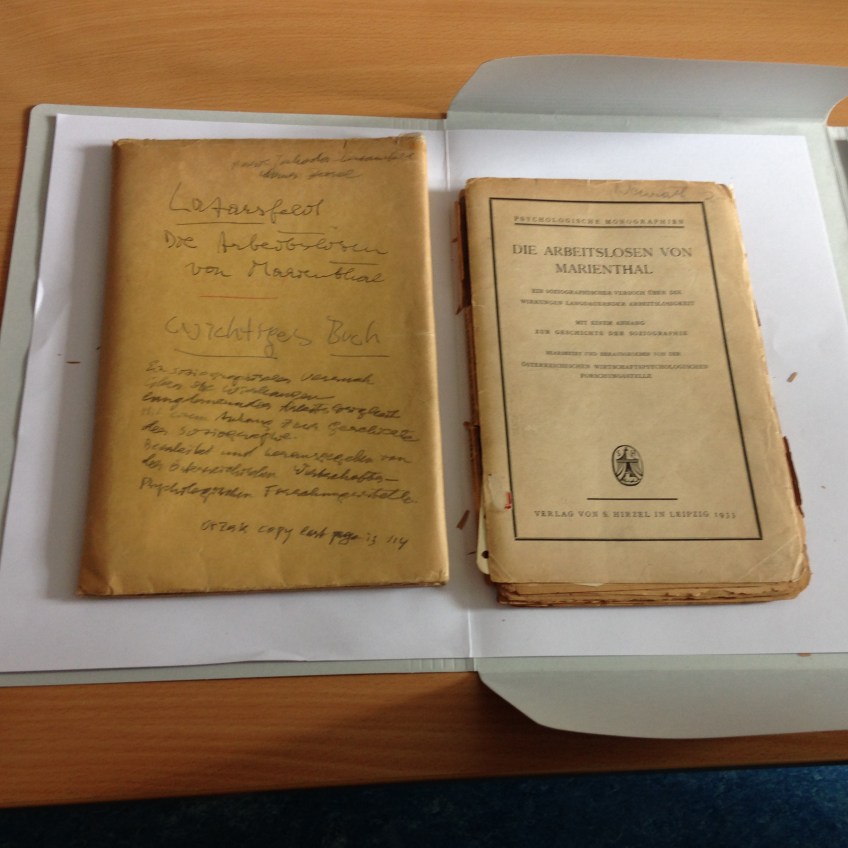 Lazarsfeld
Die Arbeitslosen
von Marienthal
Wichtiges Buch
Ein soziographischer Versuch
über die Wirkungen
langdauernder Arbeitslosigkeit
Mit einem Anhang zur Geschichte
der Soziographie.
Bearbeitet und herausgegeben von
der Österreichischen Wirtschafts-
Psychologischen Forschungsstelle
copy last page is 114
PSYCHOLOGISCHE MONOGRAPHIEN
DIE ARBEITSLOSEN VON
MARIENTHAL
EIN SOZIOGRAPHISCHER VERSUCH ÜBER DIE
WIRKUNGEN LANGDAUERNDER ARBEITSLOSIGKEIT
MIT EINEM ANHANG
ZUR GESCHICHTE DER SOZIOGRAPHIE
BEARBEITET UND HERAUSGEGEBEN VON DER
ÖSTERREICHISCHEN WIRTSCHAFTSPSYCHOLOGISCHEN
FORSCHUNGSSTELLE
VERLAG VON S. HIRZEL IN LEIPZIG 1933